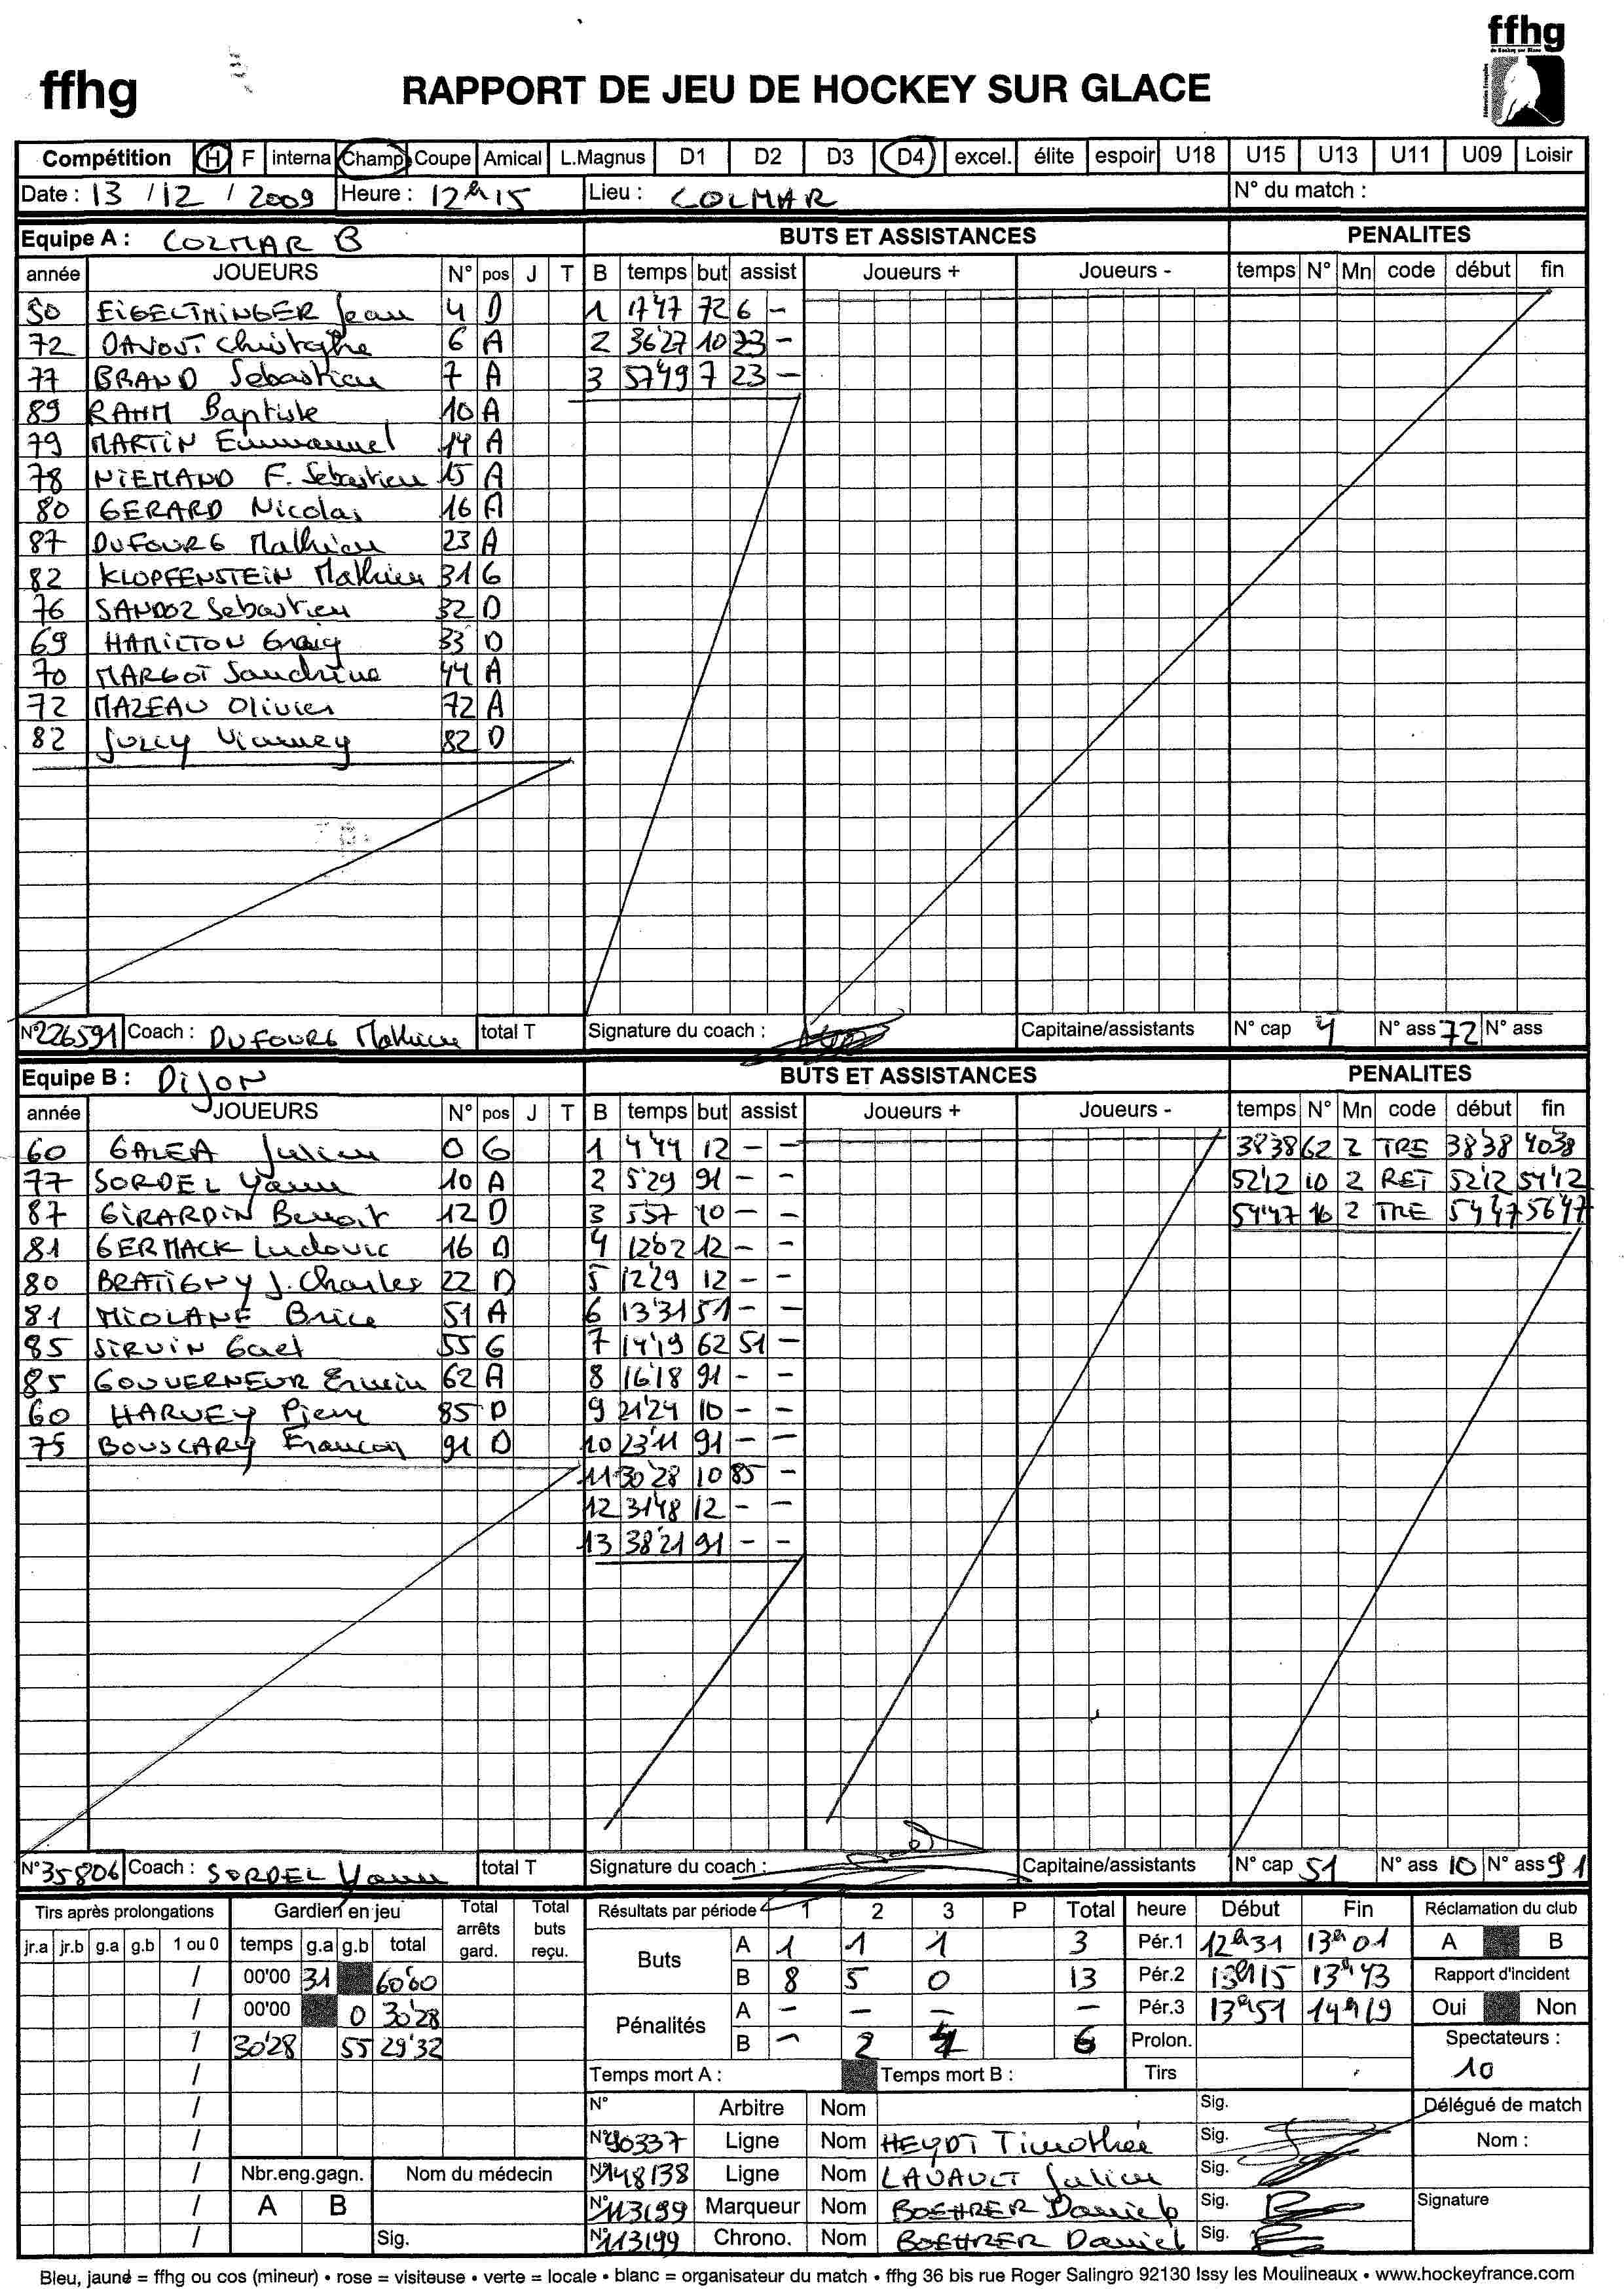 ffhg
ffhg
RAPPORT DE JEU DE HOCKEY SUR GLACE
Compétition H F interna Champ Coupe Amical L.Magnus D1 D2 D3 D4 excel. élite espoir U18 U15 U13 U11 U09 Loisir
Date : 13 / 12 / 2009 Heure : 12h15 Lieu : COLMAR N° du match :
Equipe A : COLMAR B BUTS ET ASSISTANCES PENALITES
année JOUEURS N° pos J T B temps but assist Joueurs + Joueurs - temps N° Mn code début fin
50 EIGELTHINGER Jean 4 D 1 17'47 72 6 -
72 DAVOUT Christophe 6 A 2 36'27 10 23 -
77 BRAND Sebastien 7 A 3 57'49 7 23 -
89 RAHM Baptiste 10 A
79 MARTIN Emmanuel 14 A
78 NIEMAND F. Sebastien 15 A
80 GERARD Nicolas 16 A
87 DUFOURG Mathieu 23 A
82 KLOPFENSTEIN Mathieu 31 G
76 SANDOZ Sebastien 32 D
69 HAMILTON Graig 33 D
70 MARGOT Sandrine 44 A
72 MAZEAU Olivier 72 A
82 JOLLY Vianney 82 D
N° 226591 Coach : DUFOURG Mathieu total T Signature du coach : Capitaine/assistants N° cap 4 N° ass 72 N° ass
Equipe B : DIJON BUTS ET ASSISTANCES PENALITES
année JOUEURS N° pos J T B temps but assist Joueurs + Joueurs - temps N° Mn code début fin
60 GALEA Julien 0 G 1 4'44 12 - - 38'38 62 2 TRE 38'38 40'38
77 SORDEL Yann 10 A 2 5'29 91 - - 52'12 10 2 RET 52'12 54'12
87 GIRARDIN Benoit 12 D 3 5'57 10 - - 54'47 16 2 TRE 54'47 56'47
81 GERMACK Ludovic 16 D 4 12'02 12 - -
80 BRATIGNY J. Charles 22 D 5 12'29 12 - -
81 MIOLANE Brice 51 A 6 13'31 51 - -
85 SIRVIN Gael 55 G 7 14'19 62 51 -
85 GOUVERNEUR Erwin 62 A 8 16'18 91 - -
60 HARVEY Pierre 85 D 9 21'24 10 - -
75 BOUSCARY Francois 91 D 10 23'11 91 - -
11 30'28 10 85 -
12 31'48 12 - -
13 38'21 91 - -
N° 35806 Coach : SORDEL Yann total T Signature du coach : Capitaine/assistants N° cap 51 N° ass 10 N° ass 91
Tirs après prolongations Gardien en jeu Total arrêts gard. Total buts reçu. Résultats par période 1 2 3 P Total heure Début Fin Réclamation du club
jr.a jr.b g.a g.b 1 ou 0 temps g.a g.b total Buts A 1 1 1 3 Pér.1 12h31 13h01 A B
/ 00'00 31 60'00 B 8 5 0 13 Pér.2 13h15 13h43 Rapport d'incident
/ 00'00 0 30'28 Pénalités A - - - - Pér.3 13h51 14h19 Oui Non
/ 30'28 55 29'32 B - 2 4 6 Prolon. Spectateurs :
/ Temps mort A : Temps mort B : Tirs 10
/ N° Arbitre Nom Sig. Délégué de match
/ N° 90337 Ligne Nom HEYDT Timothée Sig. Nom :
/ Nbr.eng.gagn. Nom du médecin N° 148138 Ligne Nom LAVAULT Julien Sig.
/ A B N° 113199 Marqueur Nom BOEHRER Daniel Sig. Signature
/ Sig. N° 113199 Chrono. Nom BOEHRER Daniel Sig.
Bleu, jaune = ffhg ou cos (mineur) • rose = visiteuse • verte = locale • blanc = organisateur du match • ffhg 36 bis rue Roger Salingro 92130 Issy les Moulineaux • www.hockeyfrance.com